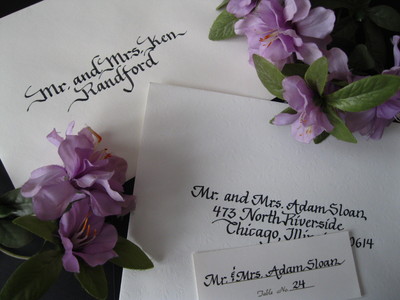 Mr. and Mrs. Ken
Randford
Mr. and Mrs. Adam Sloan,
473 North Riverside
Chicago, Illin
0614
Mr. & Mrs. Adam Sloan,
Table No. 24